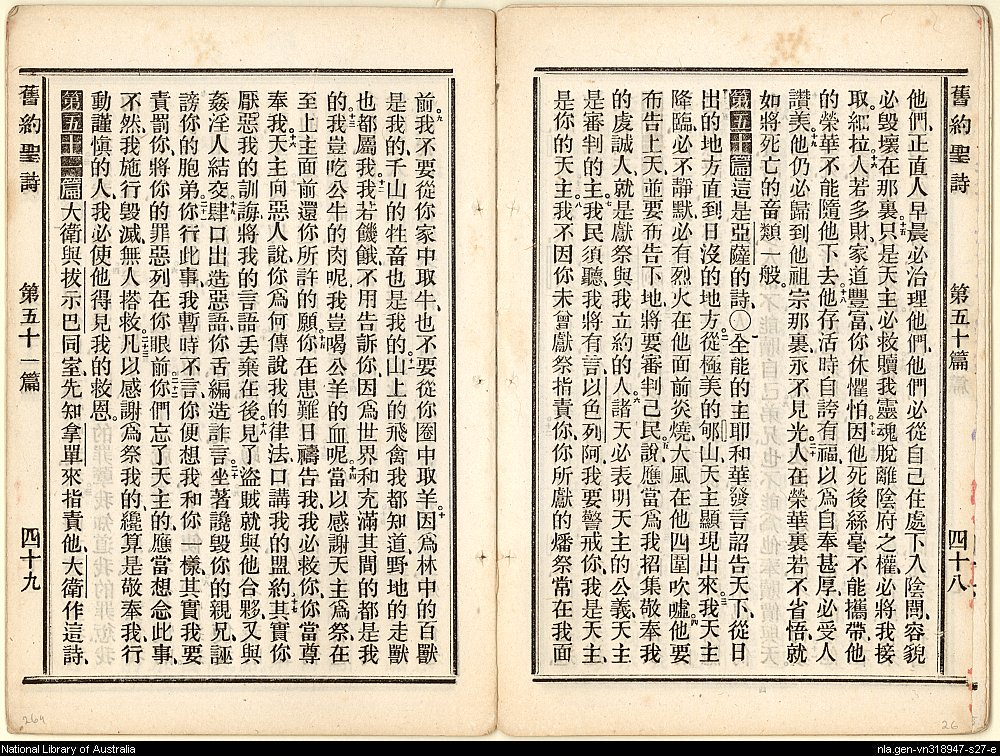 舊約聖詩 第五十篇 四十八
他們、正直人早晨必治理他們、他們必從自己住處下入陰間、容貌
必毀壞在那裏、只是天主必救贖我靈魂脫離陰府之權、必將我接
取、細拉人若多財、家道豐富、你休懼怕、因他死後絲毫不能攜帶、他
的榮華不能隨他下去、他存活時自誇有福、以為自奉甚厚、必受人
讚美、他仍必歸到他祖宗那裏、永不見光、人在榮華裏若不省悟、就
如將死亡的畜類一般。
第五十篇 這是亞薩的詩、〇全能的主耶和華發言詔告天下、從日
出的地方直到日沒的地方、從極美的郇山天主顯現出來、我天主
降臨、必不靜默、必有烈火在他面前炎燒、大風在他四圍吹噓、他要
布告上天、並要布告下地、將要審判己民、說應當為我招集敬奉我
的虔誠人、就是獻祭與我立約的人、諸天必表明天主的公義、天主
是審判的主、我民須聽、我將有言、以色列阿、我要警戒你、我是天主、
是你的天主、我不因你未曾獻祭指責你、你所獻的燔祭常在我面
前、我不要從你家中取牛、也不要從你圈中取羊、因為林中的百獸
是我的、千山的牲畜也是我的、山上的飛禽我都知道、野地的走獸
也都屬我、我若饑餓不用告訴你、因為世界和充滿其間的都是我
的、我豈吃公牛的肉呢、我豈喝公羊的血呢、當以感謝天主為祭、在
至上主面前還你所許的願、你在患難日禱告我、我必救你、你當尊
奉我、天主向惡人說、你為何傳說我的律法、口講我的盟約、其實你
厭惡我的訓誨、將我的言語丟棄在後、見了盜賊就與他合夥、又與
姦淫人結交、肆口出造惡語、你舌編造詐言、坐著讒毀你的親兄、誣
謗你的胞弟、你行此事、我暫時不言、你便想我和你一樣、其實我要
責罰你、將你的罪惡列在你眼前、你們忘了天主的、應當想念此事、
不然我施行毀滅、無人搭救、凡以感謝為祭我的、纔算是敬奉我、行
動謹愼的人、我必使他得見我的救恩。
第五十一篇 大衛與拔示巴同室、先知拿單來指責他、大衛作這詩、
舊約聖詩 第五十一篇 四十九
264
26
National Library of Australia
nla.gen-vn318947-s27-e